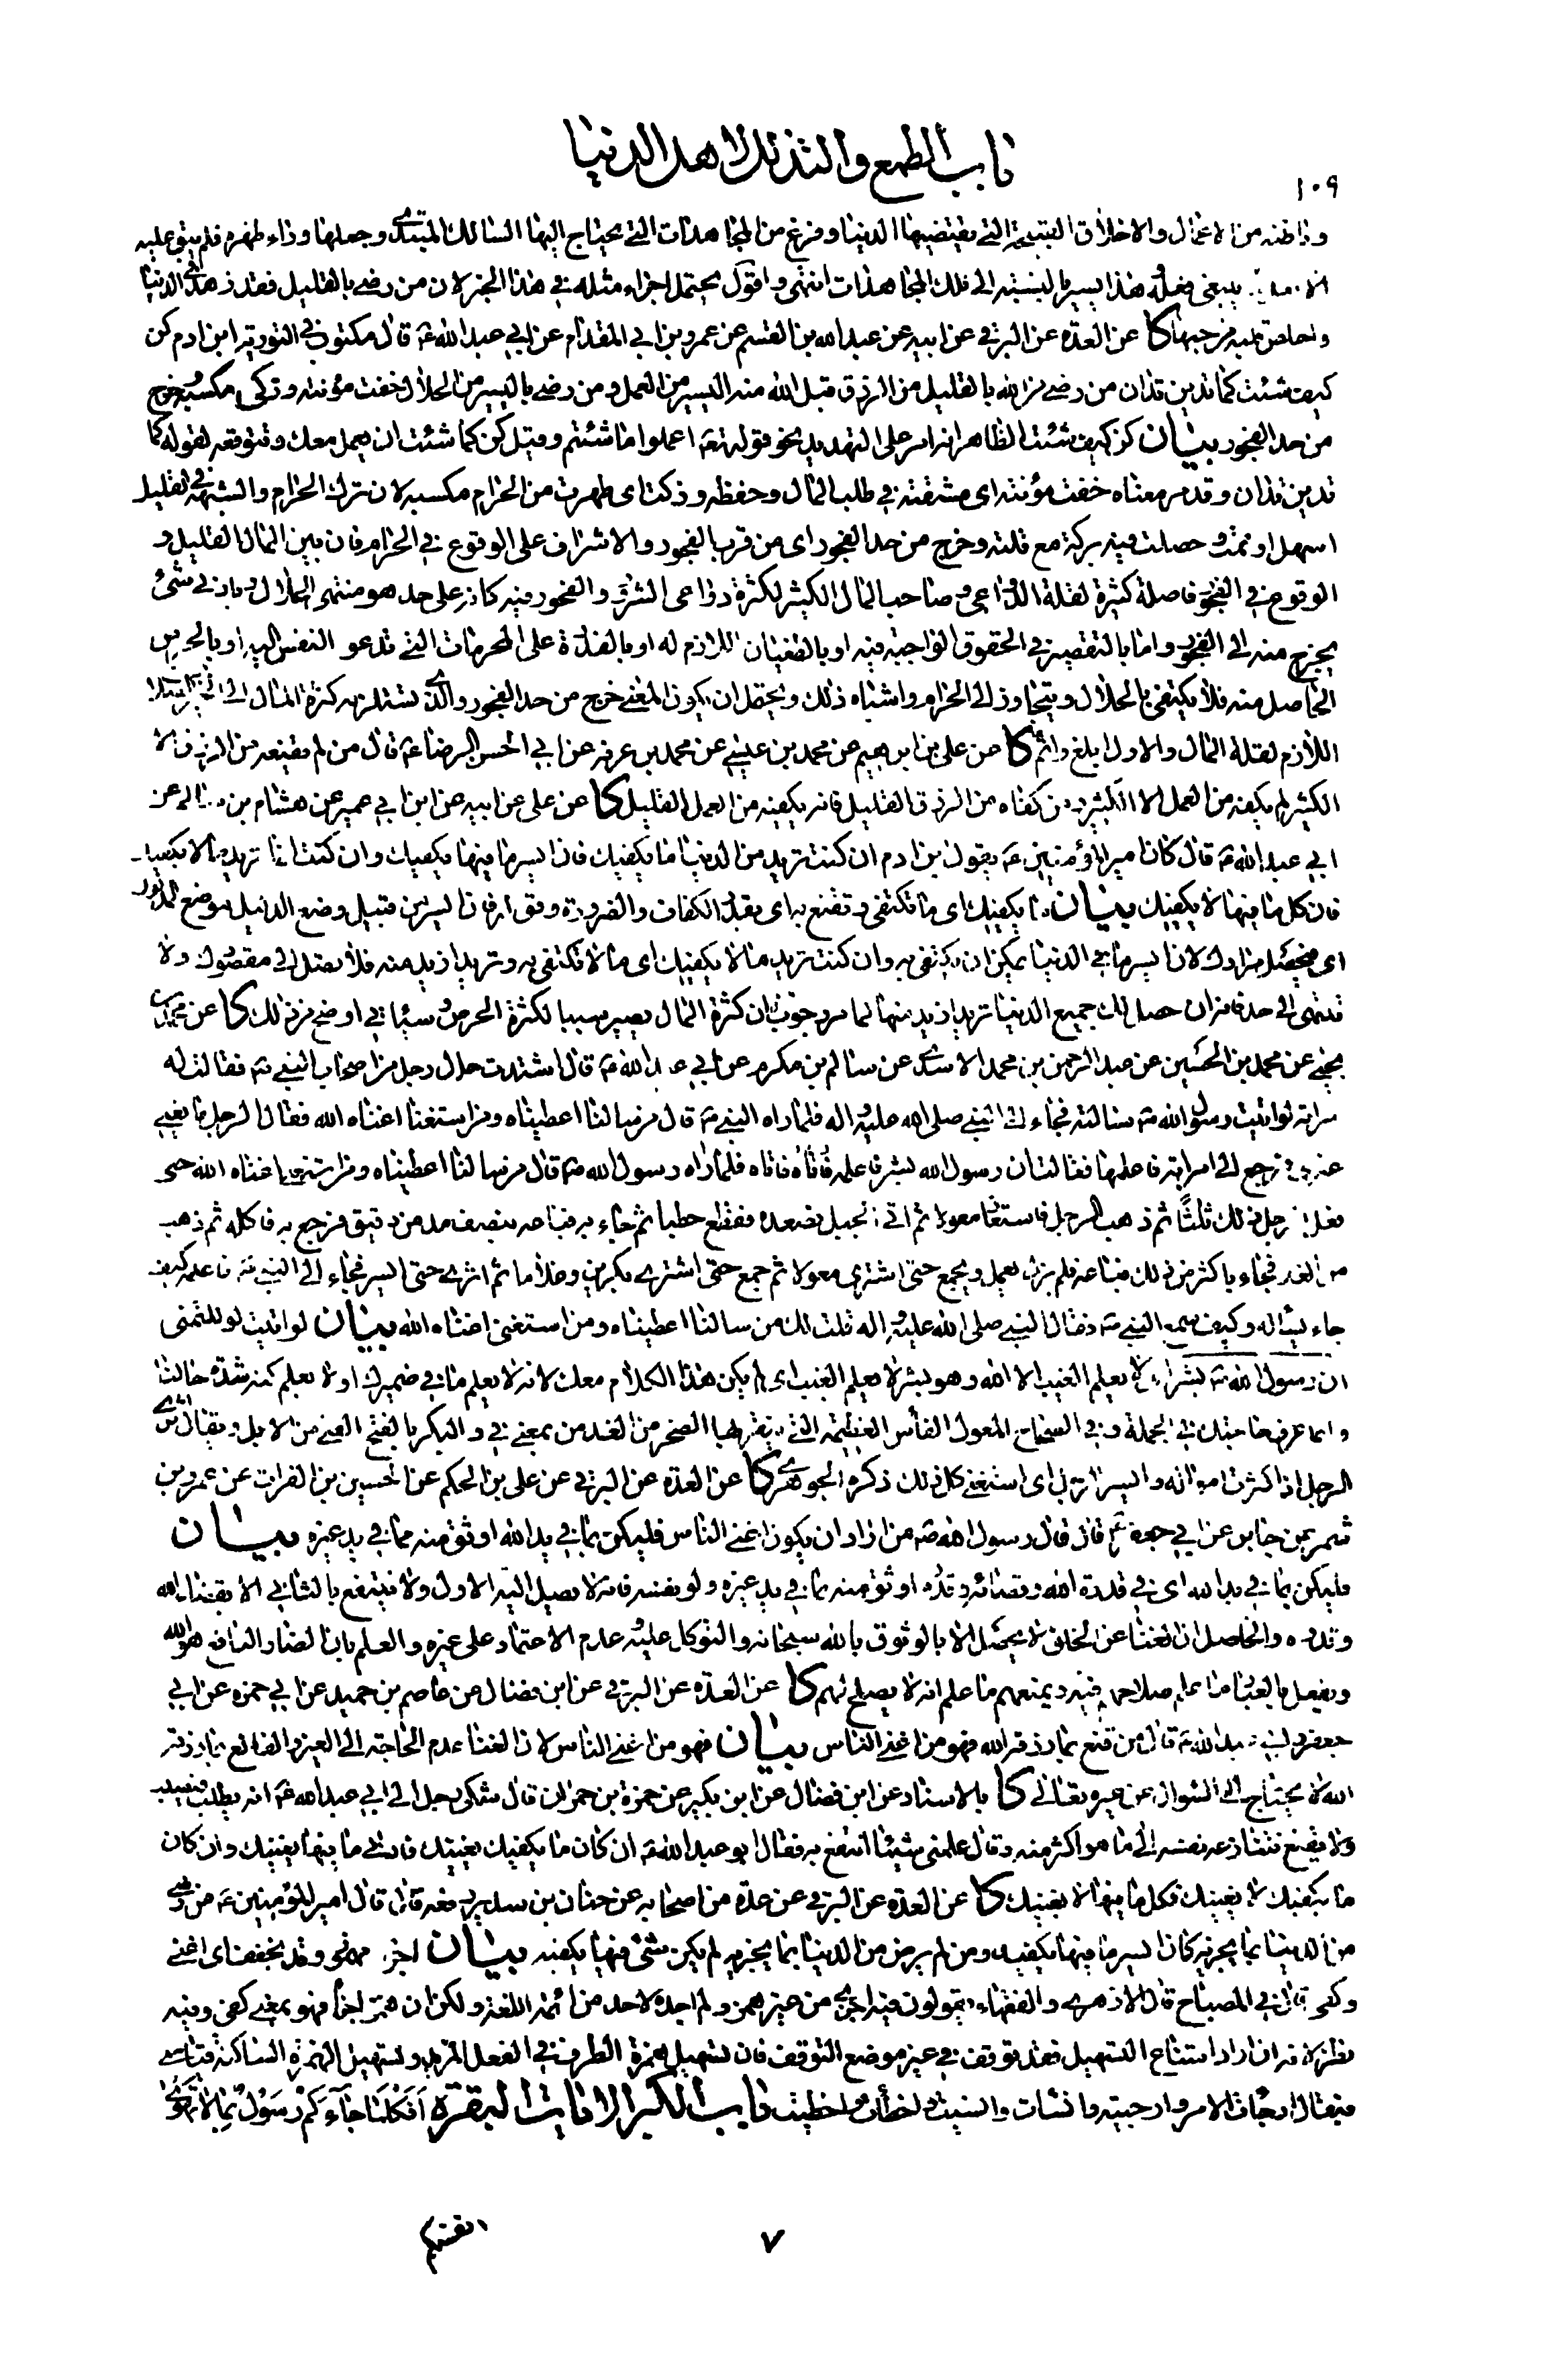 باب الطمع والتذلل لاهل الدنيا
١٠٩
وباطنه من الاعمال والاخلاق القبيحة التي تقتضيها الدنيا وفرغ من المجاهدات التي يحتاج اليها السالك المبتدى وجعلها وراء ظهره فلم يبق عليه
الا ما ينبغي فعله هذا يسير بالنسبة الى تلك المجاهدات انتهى واقول يحتمل اجراء مثله في هذا الخبر لان من رضي بالقليل فقد زهد في الدنيا
كا عن العدة عن البرقي عن ابيه عن عبد الله بن القسم عن عمرو بن ابي المقدام عن ابي عبد الله ع قال مكتوب في التورية ابن ادم كن
كيف شئت كما تدين تدان من رضي من الله بالقليل من الرزق قبل الله منه اليسير من العمل ومن رضي باليسير من الحلال خفت مؤنته وزكى مكسبه وخرج
من حد الفجور بيان كن كيف شئت الظاهر انه امر على التهديد نحو قوله تعالى اعملوا ما شئتم وقيل كن كما شئت ان يعمل معك وتتوقعه لقوله كما
تدين تدان وقد مر معناه خفت مؤنته اى مشقته في طلب المال وحفظه وزكت اى طهرت من الحرام مكسبه لان ترك الحرام والشبهة في القليل
اسهل او نمت وحصلت فيه بركة مع قلته وخرج من حد الفجور اى من قرب الفجور والاشراف على الوقوع في الحرام فان بين المال القليل و
الوقوع في الفجور فاصلة كثيرة لقلة الدواعي وصاحب المال الكثير لكثرة دواعى الشرور والفجور فيه كانه على حد هو منتهى الحلال وبادنى شئ
يخرج منه الى الفجور واما بالتقصير في الحقوق الواجبة فيه او بالطغيان اللازم له او بالقدرة على المحرمات التي تدعو النفس اليها او بالحرص
الحاصل منه فلا يكتفى بالحلال ويتجاوز الى الحرام واشباه ذلك ويحتمل ان يكون المعنى خرج من حد الفجور الذى تستلزمه كثرة المال
اللازم لقلة المال والاول ابلغ واتم كا عن على بن ابرهيم عن محمد بن عيسى عن محمد بن عرفة عن ابي الحسن الرضا ع قال من لم يقنعه من الرزق الا
الكثير لم يكفه من العمل الا الكثير ومن كفاه من الرزق القليل فانه يكفيه من العمل القليل كا عن على عن ابيه عن ابن ابي عمير عن هشام بن سالم عن
ابي عبد الله ع قال كان امير المؤمنين ع يقول ابن ادم ان كنت تريد من الدنيا ما يكفيك فان ايسر ما فيها يكفيك وان كنت انما تريد ما لا يكفيك
فان كل ما فيها لا يكفيك بيان ما يكفيك اى ما تكتفى وتقنع به اى بقدر الكفاف والضرورة وقوله فان ايسر من قبيل وضع الدليل موضع المدلول
اى فيحصل مرادك لان ايسر ما في الدنيا يمكن ان يكتفى به وان كنت تريد ما لا يكفيك اى ما لا تكتفى به وتريد ازيد منه فلا تصل الى مقصودك ولا
تنتهى الى حد فانه ان حصل لك جميع الدنيا تريد ازيد منها لما مر ان كثرة المال يصير سببا لكثرة الحرص وسيأتي اوضح من ذلك كا عن محمد بن
يحيى عن محمد بن الحسين عن عبد الرحمن بن محمد الاسدى عن سالم بن مكرم عن ابي عبد الله ع قال اشتدت حال رجل من اصحاب النبي ص فقالت له
امراته لو اتيت رسول الله ص فسالته فجاء الى النبي صلى الله عليه واله فلما راه النبي ص قال من سالنا اعطيناه ومن استغنى اغناه الله فقال الرجل ما يعنى
غيرى فرجع الى امراته فاعلمها فقالت ان رسول الله بشر فاعلمه فاتاه فلما راه رسول الله ص قال من سالنا اعطيناه ومن استغنى اغناه الله حتى
فعل الرجل ذلك ثلثا ثم ذهب الرجل فاستعار معولا ثم اتى الجبل فصعده فقطع حطبا ثم جاء به فباعه بنصف مد من دقيق فرجع به فاكله ثم ذهب
من الغد فجاء باكثر من ذلك فباعه فلم يزل يعمل ويجمع حتى اشترى معولا ثم جمع حتى اشترى بكرين وغلاما ثم اثرى حتى ايسر فجاء الى النبي ص فاعلمه كيف
جاء يسأله وكيف سمع النبي ص فقال النبي صلى الله عليه واله قلت لك من سالنا اعطيناه ومن استغنى اغناه الله بيان لو اتيت لو للتمنى
ان رسول الله ص بشر اى لا يعلم الغيب الا الله وهو بشر لا يعلم الغيب اى لم يكن هذا الكلام معك لانه لا يعلم ما في ضميرك او لا يعلم كنه شدة حالنا
وانما عرف حاجتك في الجملة وفي الصحاح المعول الفأس العظيمة التي ينقر بها الصخر من الغد من بمعنى في والبكر بالفتح الفتى من الابل ويقال اثرى
الرجل اذا كثرت امواله وايسر الرجل اى استغنى كل ذلك ذكره الجوهرى كا عن العدة عن البرقي عن على بن الحكم عن الحسين بن الفرات عن عمرو بن
شمر عن جابر عن ابي جعفر ع قال قال رسول الله ص من اراد ان يكون اغنى الناس فليكن بما في يد الله اوثق منه مما في يد غيره بيان
فليكن بما في يد الله اى في قدرة الله وقضائه وقدره اوثق منه بما في يد غيره ولو نفسه فانه لا يصل اليه الاول ولا ينتفع بالثاني الا بقضاء الله
وقدره والحاصل ان الغنا عن الخلق لا يحصل الا بالوثوق بالله سبحانه والتوكل عليه وعدم الاعتماد على غيره والعلم بان الضار النافع هو الله
ويفعل بالعباد ما علم صلاحهم فيه ويمنعهم ما علم انه لا يصلح لهم كا عن العدة عن البرقي عن ابن فضال عن عاصم بن حميد عن ابي حمزه عن ابي
جعفر او ابي عبد الله ع قال من قنع بما رزقه الله فهو من اغنى الناس بيان فهو من اغنى الناس لان الغنا عدم الحاجة الى الغير والقانع بما رزقه
الله لا يحتاج الى السؤال عن غيره تعالى كا بالاسناد عن ابن فضال عن ابن بكير عن حمزة بن حمران قال شكى رجل الى ابي عبد الله ع انه يطلب فيصيب
ولا يقنع وتنازعه نفسه الى ما هو اكثر منه وقال علمنى شيئا انتفع به فقال ابو عبد الله ع ان كان ما يكفيك يغنيك فادنى ما فيها يغنيك وان كان
ما يكفيك لا يغنيك فكل ما فيها لا يغنيك كا عن العدة عن البرقي عن عدة من اصحابه عن حنان بن سدير رفعه قال قال امير المؤمنين ع من رضى
من الدنيا بما يجزيه كان ايسر ما فيها يكفيه ومن لم يرض من الدنيا بما يجزيه لم يكن شئ فيها يكفيه بيان اجزء مهموز وقد يخفف اى اغنى
وكفى قال في المصباح قال الازهرى والفقهاء يقولون فيه اجزى من غير همز ولم اجده لاحد من ائمة اللغة ولكن ان همز اجزأ فهو بمعنى كفى وفيه
نظر لانه ان اراد امتناع التسهيل فقد توقف في غير موضع التوقف فان تسهيل همزة الطرف في الفعل المزيد وتسهيل الهمزة الساكنة قياسى
فيقال ارجأت الامر وارجيته وانشات وانسيت واخطأت واخطيت باب الكبر الايات البقرة اَفَكُلَّمَا جَاءَكُمْ رَسُولٌ بِمَا لَا تَهْوَى
٧
انفسكم